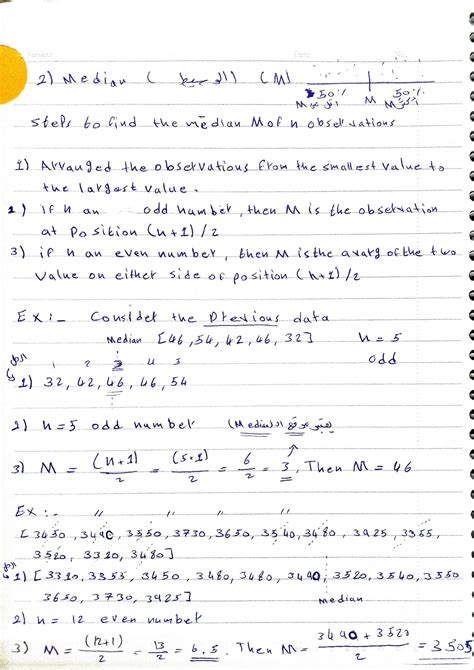 Subject
Date
2) Median ( الوسيط ) (M)
50% 50%
M
steps to find the median M of n observations
1) Arranged the observations from the smallest value to
the largest value.
2) if n an odd number, then M is the observation
at position (n+1)/2
3) if n an even number, then M is the avarg of the two
value on either side of position (n+1)/2
Ex:- Consider the Previous data
Median [46, 54, 42, 46, 32] n = 5
1 2 3 4 5 odd
1) 32, 42, 46, 46, 54
2) n = 5 odd number (Median)
3) M = (n+1)/2 = (5+1)/2 = 6/2 = 3, Then M = 46
Ex:- " " " "
[3450, 3490, 3550, 3730, 3650, 3540, 3480, 3925, 3355,
3520, 3310, 3480]
1) [3310, 3355, 3450, 3480, 3480, 3490, 3520, 3540, 3550
3650, 3730, 3925] median
2) n = 12 even number
3) M = (12+1)/2 = 13/2 = 6.5. Then M = 3490 + 3520/2 = 3505